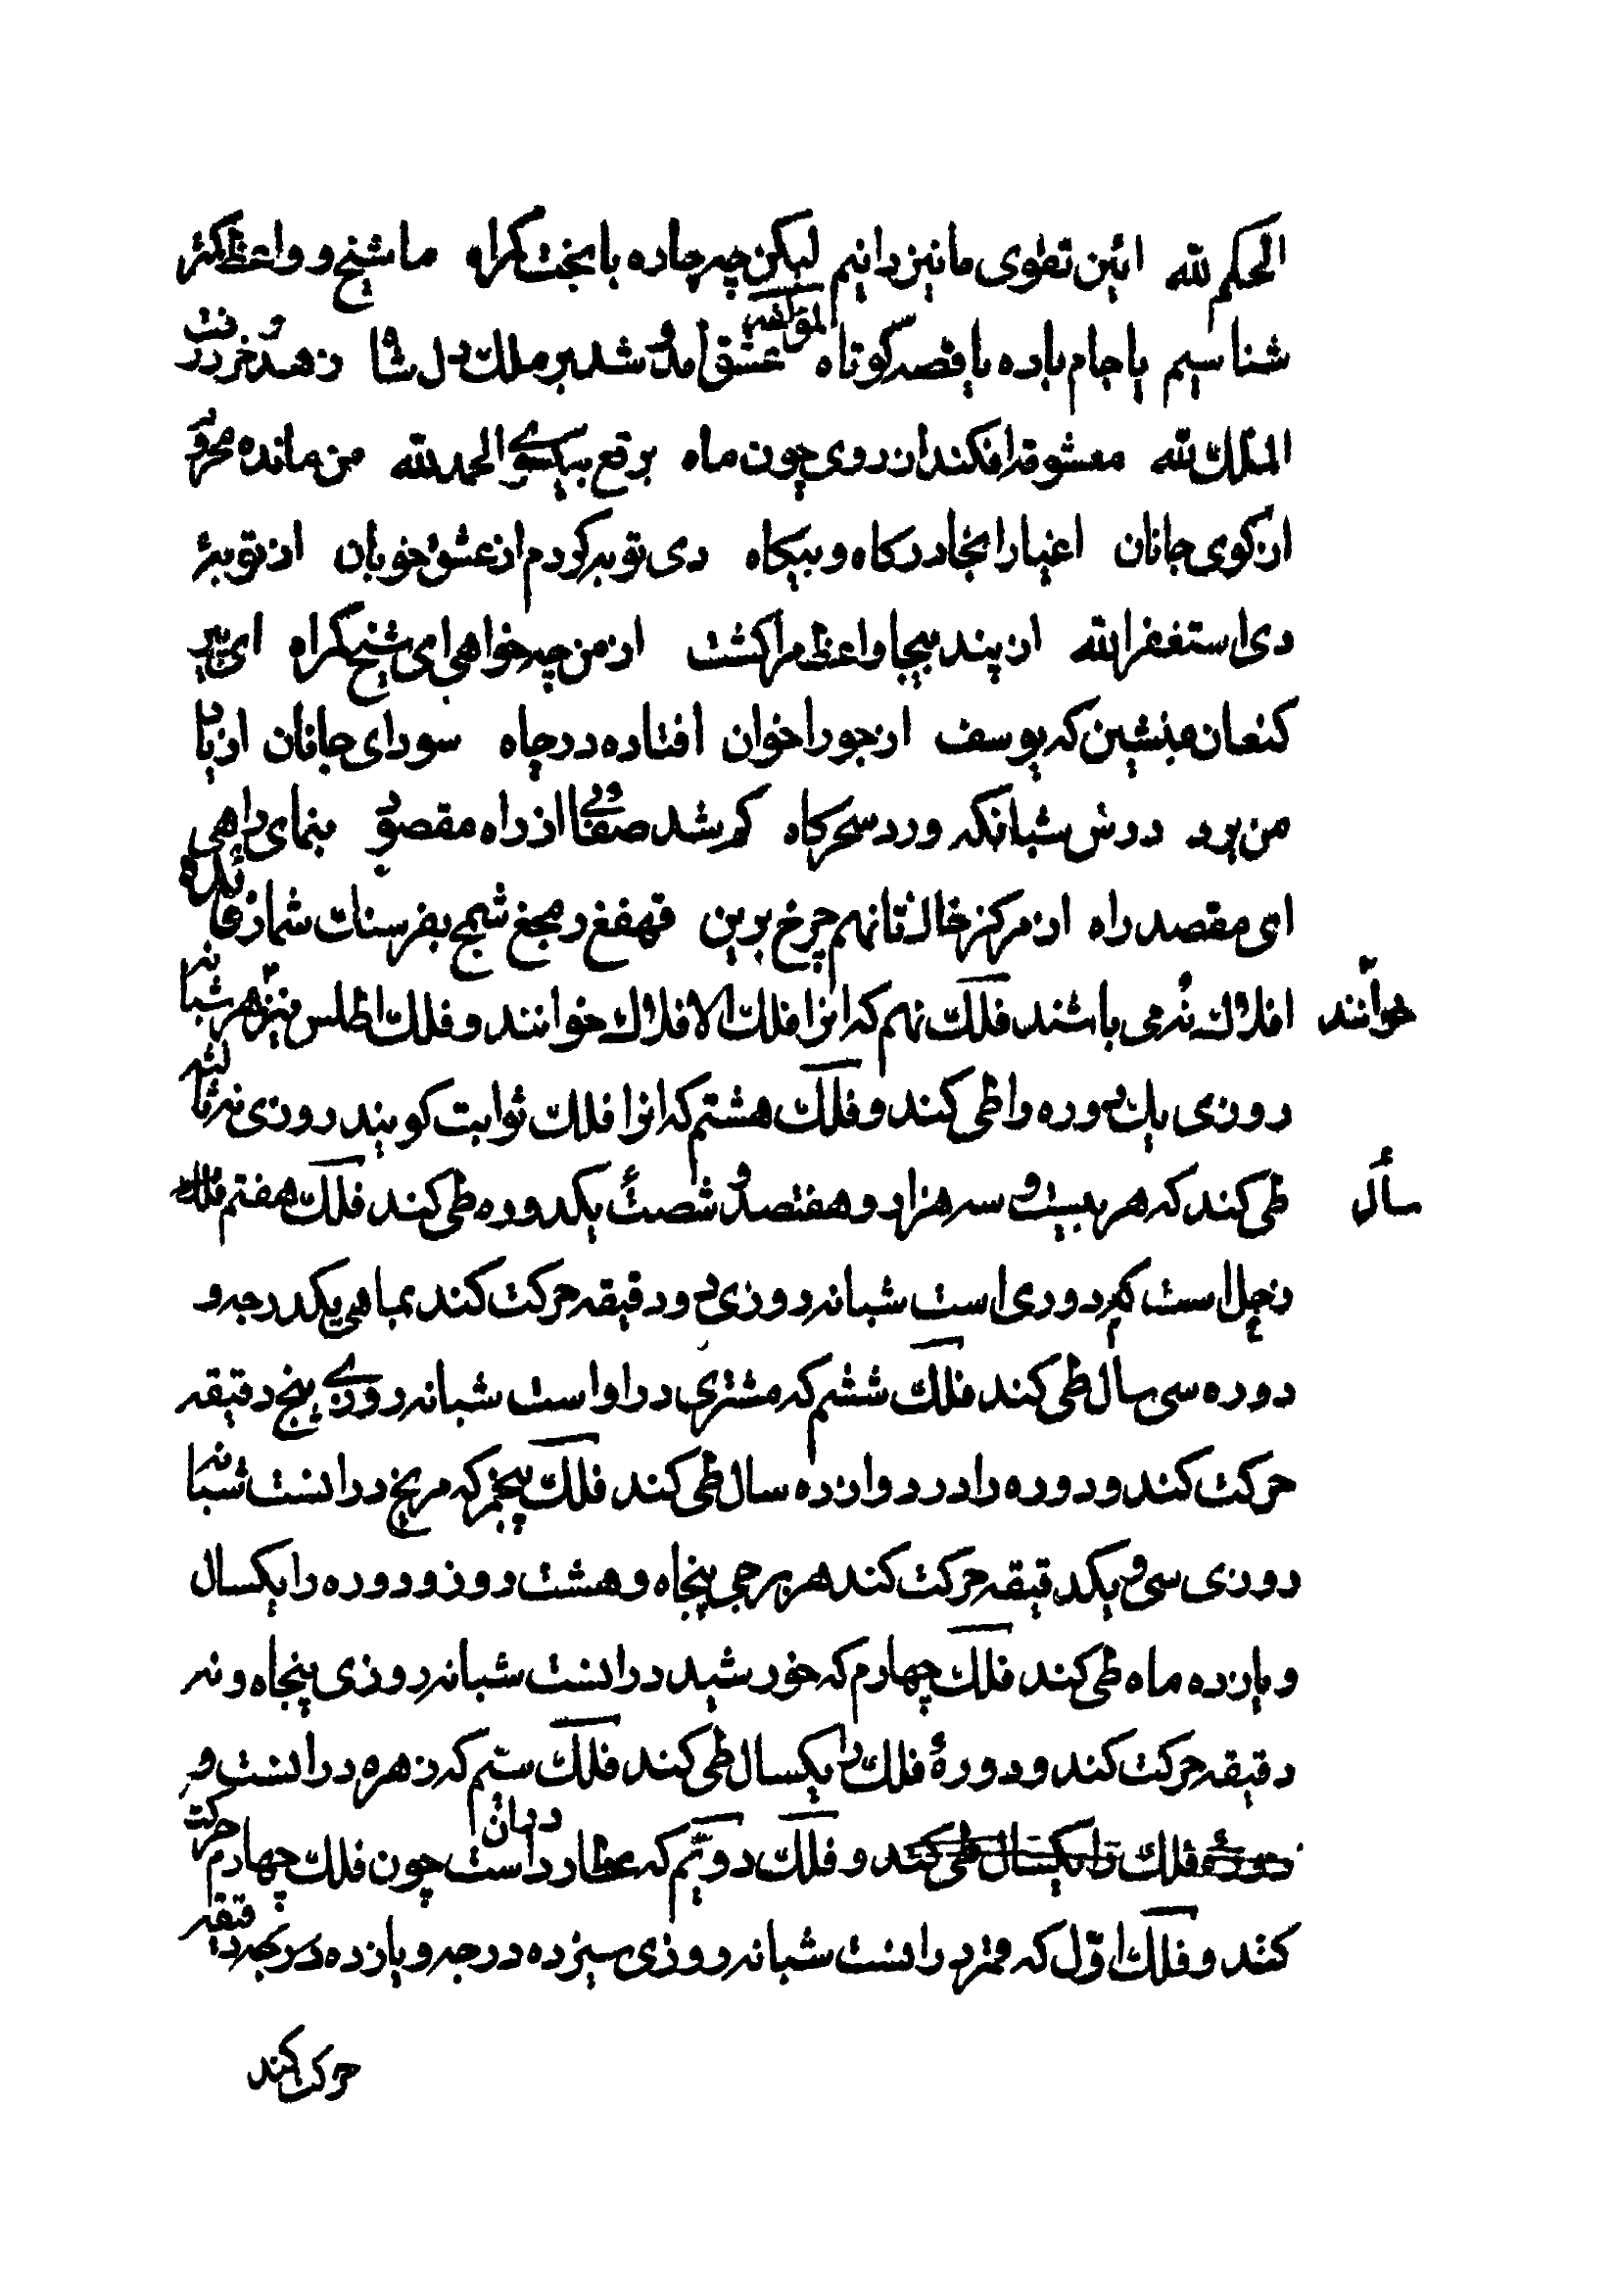 الحکم لله ائین تقوی ما نیز دانیم لیکن چه چاره با بخت کمراه ما شیخ و واعظ کمتر
شناسیم یا جام باده یا قصه کوتاه لمؤلفه عشق امد و شد بر ملک دل شاه زهد و خرد رفت
الملک لله معشوقه افکند از روی چون ماه برقع بیکسوی الحمد لله من مانده محروم
از کوی جانان اغیار انجا در کاه و بیکاه دی توبه کردم از عشق خوبان از توبهٔ
دی استغفر الله از پند بیجا واعظ مرا کشت از من چه خواهی ای شیخ کمراه ای پیر
کنعان منشین که یوسف از جور اخوان افتاده در چاه سودای جانان از یاد
من برد درس شبانکه ورد سحرکاه کم شد صفائی از راه مقصود بنمای راهی
ای مقصد راه از مرکز خاک تا نهم چرخ برین قهفغ دمجغ شمج بفرسنات شمار فائده
افلاک نه می باشند فلک نهم که انرا فلک الافلاک خوانند و فلک اطلس نیز هر شبانه
خوانند
روزی یک دوره را طی کند و فلک هشتم که انرا فلک ثوابت کویند روزی نه ثالثه
طی کند که هر بیست و سه هزار و هفتصد و شصت یکدوره طی کند فلک هفتم فلک
سال
زحل است که دوری است شبانه روزی دو دقیقه حرکت کند بماهی یکدرجه و
دوره سی سال طی کند فلک ششم که مشتری در او است شبانه روزی پنج دقیقه
حرکت کند و دوره را در دوازده سال طی کند فلک پنجم که مریخ در انست شبانه
روزی سی و یکدقیقه حرکت کند هر برجی پنجاه و هشت روز و دوره را یکسال
و یازده ماه طی کند فلک چهارم که خورشید در انست شبانه روزی پنجاه و نه
دقیقه حرکت کند و دورهٔ فلک را یکسال طی کند فلک سیم که زهره در انست و
دورهٔ فلک را یکسال طی کند و فلک دویم که عطارد در ان است چون فلک چهارم حرکت
کنند و فلک اول که قمر در انست شبانه روزی سیزده درجه و یازده درجه دقیقه
حرکت کند